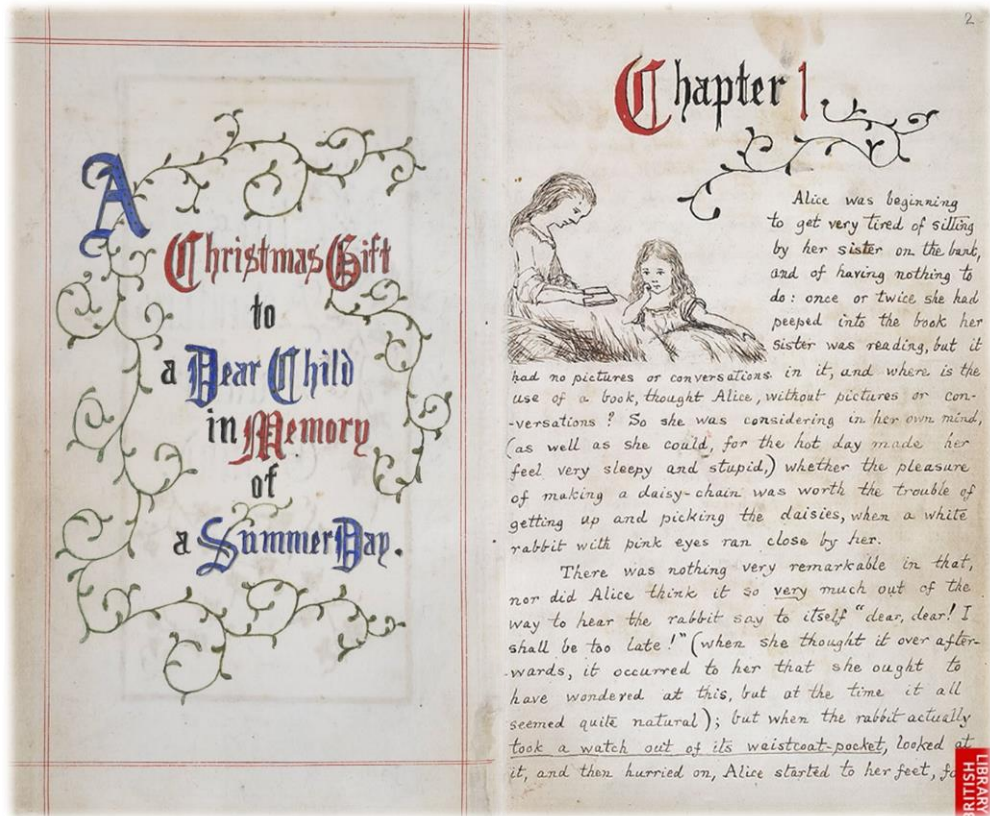 A
Christmas Gift
to
a Dear Child
in Memory
of
a Summer Day.
2
Chapter 1
Alice was beginning
to get very tired of sitting
by her sister on the bank,
and of having nothing to
do: once or twice she had
peeped into the book her
sister was reading, but it
had no pictures or conversations in it, and where is the
use of a book, thought Alice, without pictures or con-
-versations? So she was considering in her own mind,
(as well as she could, for the hot day made her
feel very sleepy and stupid,) whether the pleasure
of making a daisy-chain was worth the trouble of
getting up and picking the daisies, when a white
rabbit with pink eyes ran close by her.
There was nothing very remarkable in that,
nor did Alice think it so very much out of the
way to hear the rabbit say to itself "dear, dear! I
shall be too late!" (when she thought it over after-
-wards, it occurred to her that she ought to
have wondered at this, but at the time it all
seemed quite natural); but when the rabbit actually
took a watch out of its waistcoat-pocket, looked at
it, and then hurried on, Alice started to her feet, fo
BRITISH
LIBRARY